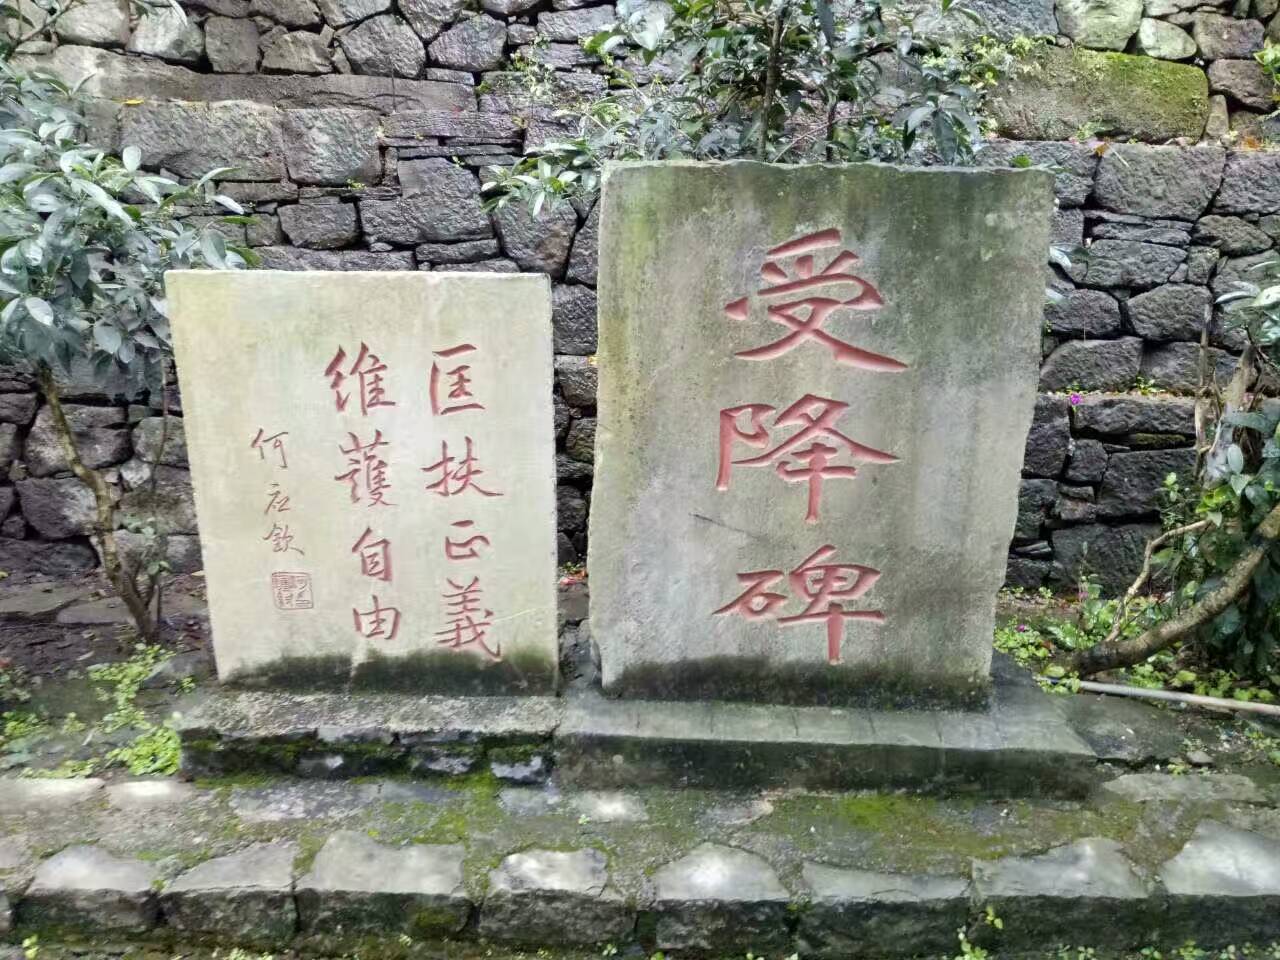 受降碑
匡扶正義
維護自由
何应欽